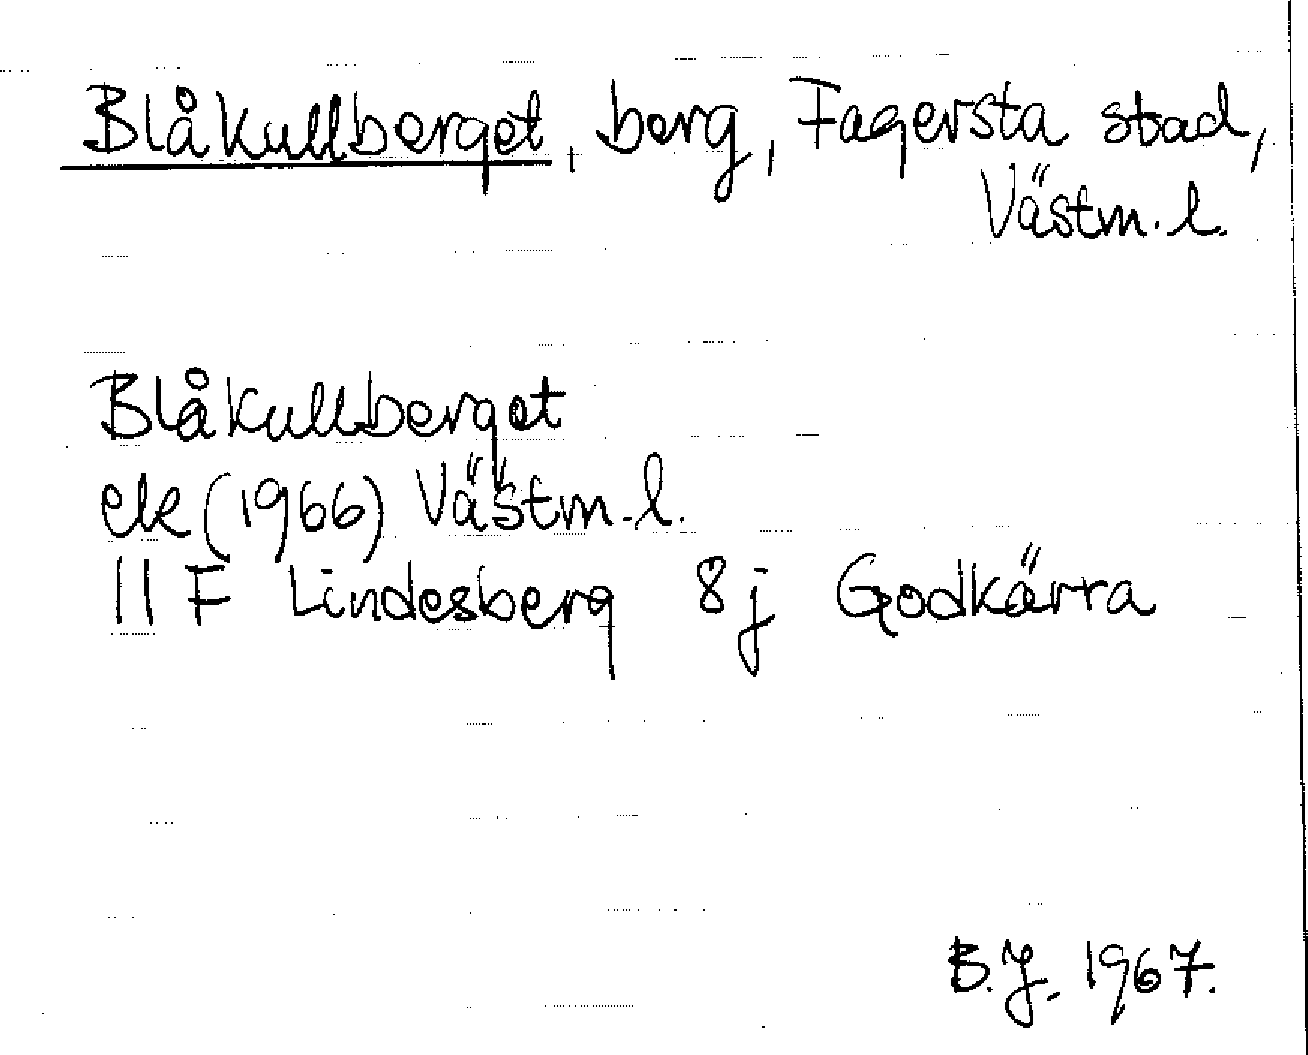 Blåkullberget, berg, Fagersta stad,
Västm. l.
Blåkullberget
ek (1966) Västm. l.
11 F Lindesberg 8 j Godkärra
B.J. 1967.